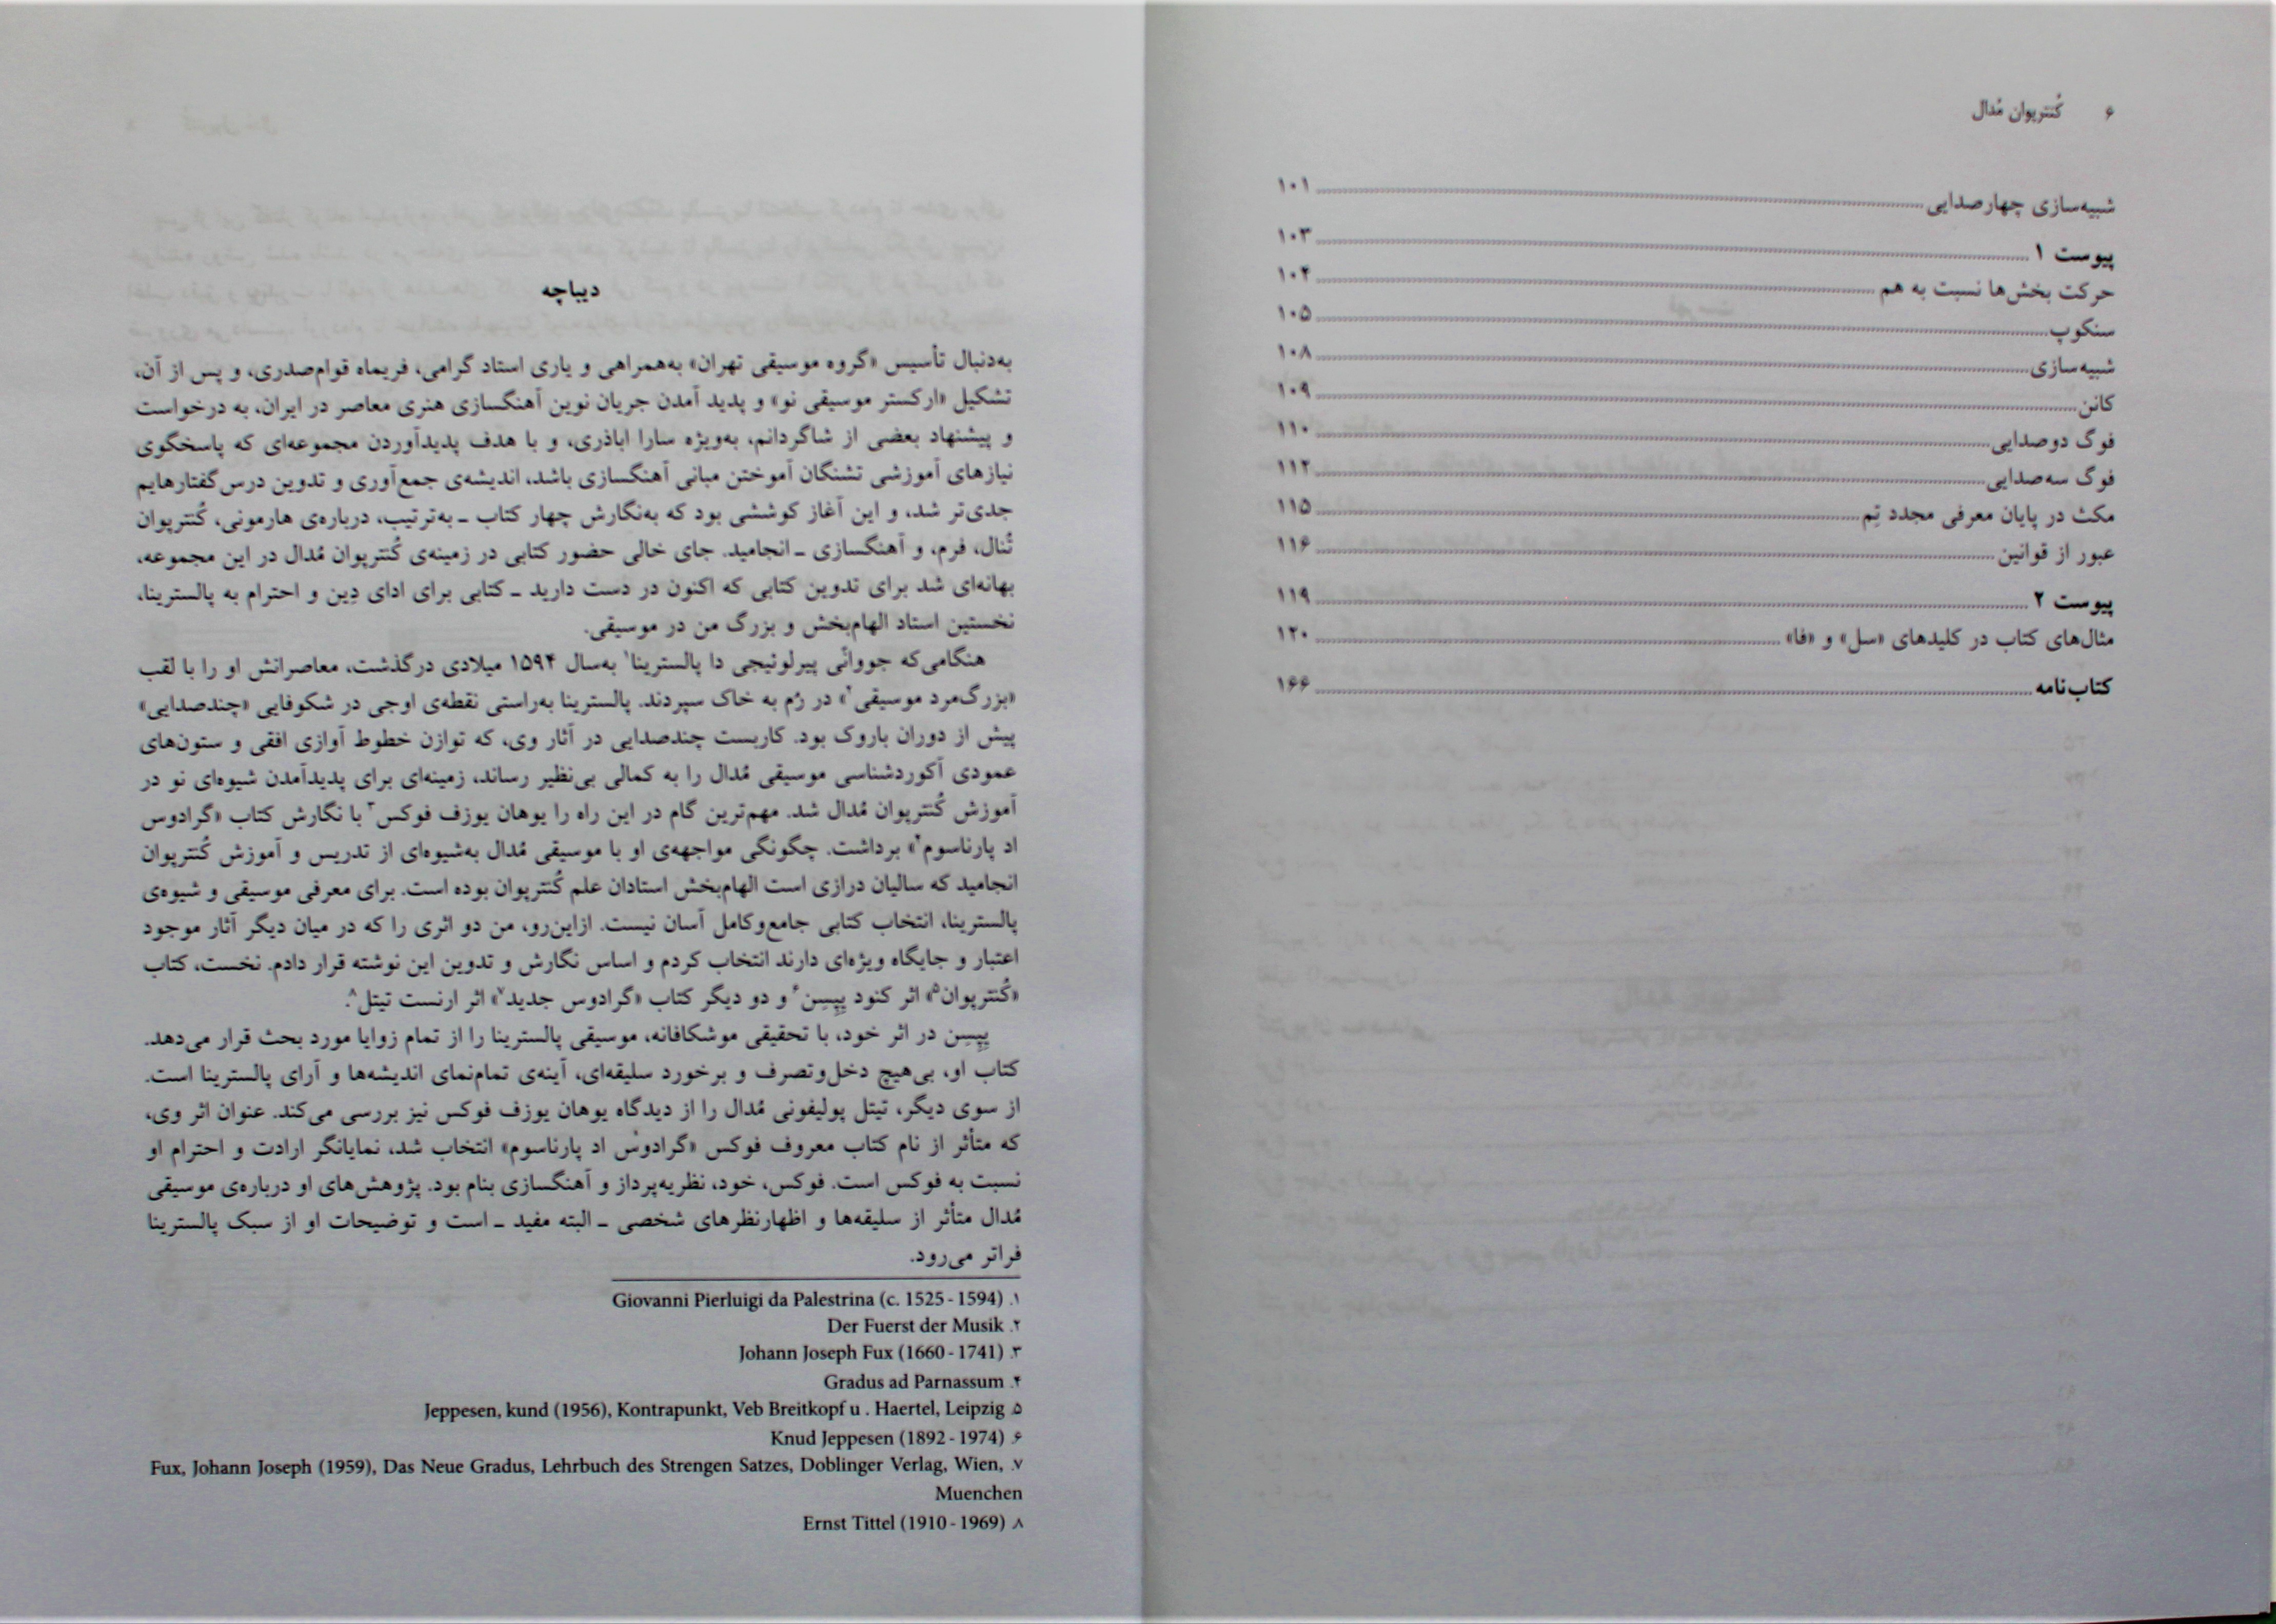 ۶ کُنترپوان مُدال
شبیه‌سازی چهارصدایی ........ ۱۰۱
پیوست ۱ ........ ۱۰۳
حرکت بخش‌ها نسبت به هم ........ ۱۰۴
سنکوپ ........ ۱۰۵
شبیه‌سازی ........ ۱۰۸
کانن ........ ۱۰۹
فوگ دوصدایی ........ ۱۱۰
فوگ سه‌صدایی ........ ۱۱۲
مکث در پایان معرفی مجدد تِم ........ ۱۱۵
عبور از قوانین ........ ۱۱۶
پیوست ۲ ........ ۱۱۹
مثال‌های کتاب در کلیدهای «سل» و «فا» ........ ۱۲۰
کتاب‌نامه ........ ۱۶۶
دیباچه
به‌دنبال تأسیس «گروه موسیقی تهران» به‌همراهی و یاری استاد گرامی، فریماه قوام‌صدری، و پس از آن،
تشکیل «ارکستر موسیقی نو» و پدید آمدن جریان نوین آهنگسازی هنری معاصر در ایران، به درخواست
و پیشنهاد بعضی از شاگردانم، به‌ویژه سارا اباذری، و با هدف پدیدآوردن مجموعه‌ای که پاسخگوی
نیازهای آموزشی تشنگان آموختن مبانی آهنگسازی باشد، اندیشه‌ی جمع‌آوری و تدوین درس‌گفتارهایم
جدی‌تر شد، و این آغاز کوششی بود که به‌نگارش چهار کتاب ـ به‌ترتیب، درباره‌ی هارمونی، کُنترپوان
تُنال، فرم، و آهنگسازی ـ انجامید. جای خالی حضور کتابی در زمینه‌ی کُنترپوان مُدال در این مجموعه،
بهانه‌ای شد برای تدوین کتابی که اکنون در دست دارید ـ کتابی برای ادای دِین و احترام به پالسترینا،
نخستین استاد الهام‌بخش و بزرگ من در موسیقی.
هنگامی‌که جووانّی پیرلوئیجی دا پالسترینا۱ به‌سال ۱۵۹۴ میلادی درگذشت، معاصرانش او را با لقب
«بزرگ‌مرد موسیقی۲» در رُم به خاک سپردند. پالسترینا به‌راستی نقطه‌ی اوجی در شکوفایی «چندصدایی»
پیش از دوران باروک بود. کاربست چندصدایی در آثار وی، که توازن خطوط آوازی افقی و ستون‌های
عمودی آکوردشناسی موسیقی مُدال را به کمالی بی‌نظیر رساند، زمینه‌ای برای پدیدآمدن شیوه‌ای نو در
آموزش کُنترپوان مُدال شد. مهم‌ترین گام در این راه را یوهان یوزف فوکس۳ با نگارش کتاب «گرادوس
اد پارناسوم۴» برداشت. چگونگی مواجهه‌ی او با موسیقی مُدال به‌شیوه‌ای از تدریس و آموزش کُنترپوان
انجامید که سالیان درازی است الهام‌بخش استادان علم کُنترپوان بوده است. برای معرفی موسیقی و شیوه‌ی
پالسترینا، انتخاب کتابی جامع‌وکامل آسان نیست. ازاین‌رو، من دو اثری را که در میان دیگر آثار موجود
اعتبار و جایگاه ویژه‌ای دارند انتخاب کردم و اساس نگارش و تدوین این نوشته قرار دادم. نخست، کتاب
«کُنترپوان۵» اثر کنود یِپِسِن۶ و دو دیگر کتاب «گرادوس جدید۷» اثر ارنست تیتل۸.
یِپِسِن در اثر خود، با تحقیقی موشکافانه، موسیقی پالسترینا را از تمام زوایا مورد بحث قرار می‌دهد.
کتاب او، بی‌هیچ دخل‌وتصرف و برخورد سلیقه‌ای، آینه‌ی تمام‌نمای اندیشه‌ها و آرای پالسترینا است.
از سوی دیگر، تیتل پولیفونی مُدال را از دیدگاه یوهان یوزف فوکس نیز بررسی می‌کند. عنوان اثر وی،
که متأثر از نام کتاب معروف فوکس «گرادوس اد پارناسوم» انتخاب شد، نمایانگر ارادت و احترام او
نسبت به فوکس است. فوکس، خود، نظریه‌پرداز و آهنگسازی بنام بود. پژوهش‌های او درباره‌ی موسیقی
مُدال متأثر از سلیقه‌ها و اظهارنظرهای شخصی ـ البته مفید ـ است و توضیحات او از سبک پالسترینا
فراتر می‌رود.
۱. Giovanni Pierluigi da Palestrina (c. 1525 - 1594)
۲. Der Fuerst der Musik
۳. Johann Joseph Fux (1660 - 1741)
۴. Gradus ad Parnassum
۵. Jeppesen, kund (1956), Kontrapunkt, Veb Breitkopf u . Haertel, Leipzig
۶. Knud Jeppesen (1892 - 1974)
۷. Fux, Johann Joseph (1959), Das Neue Gradus, Lehrbuch des Strengen Satzes, Doblinger Verlag, Wien,
Muenchen
۸. Ernst Tittel (1910 - 1969)